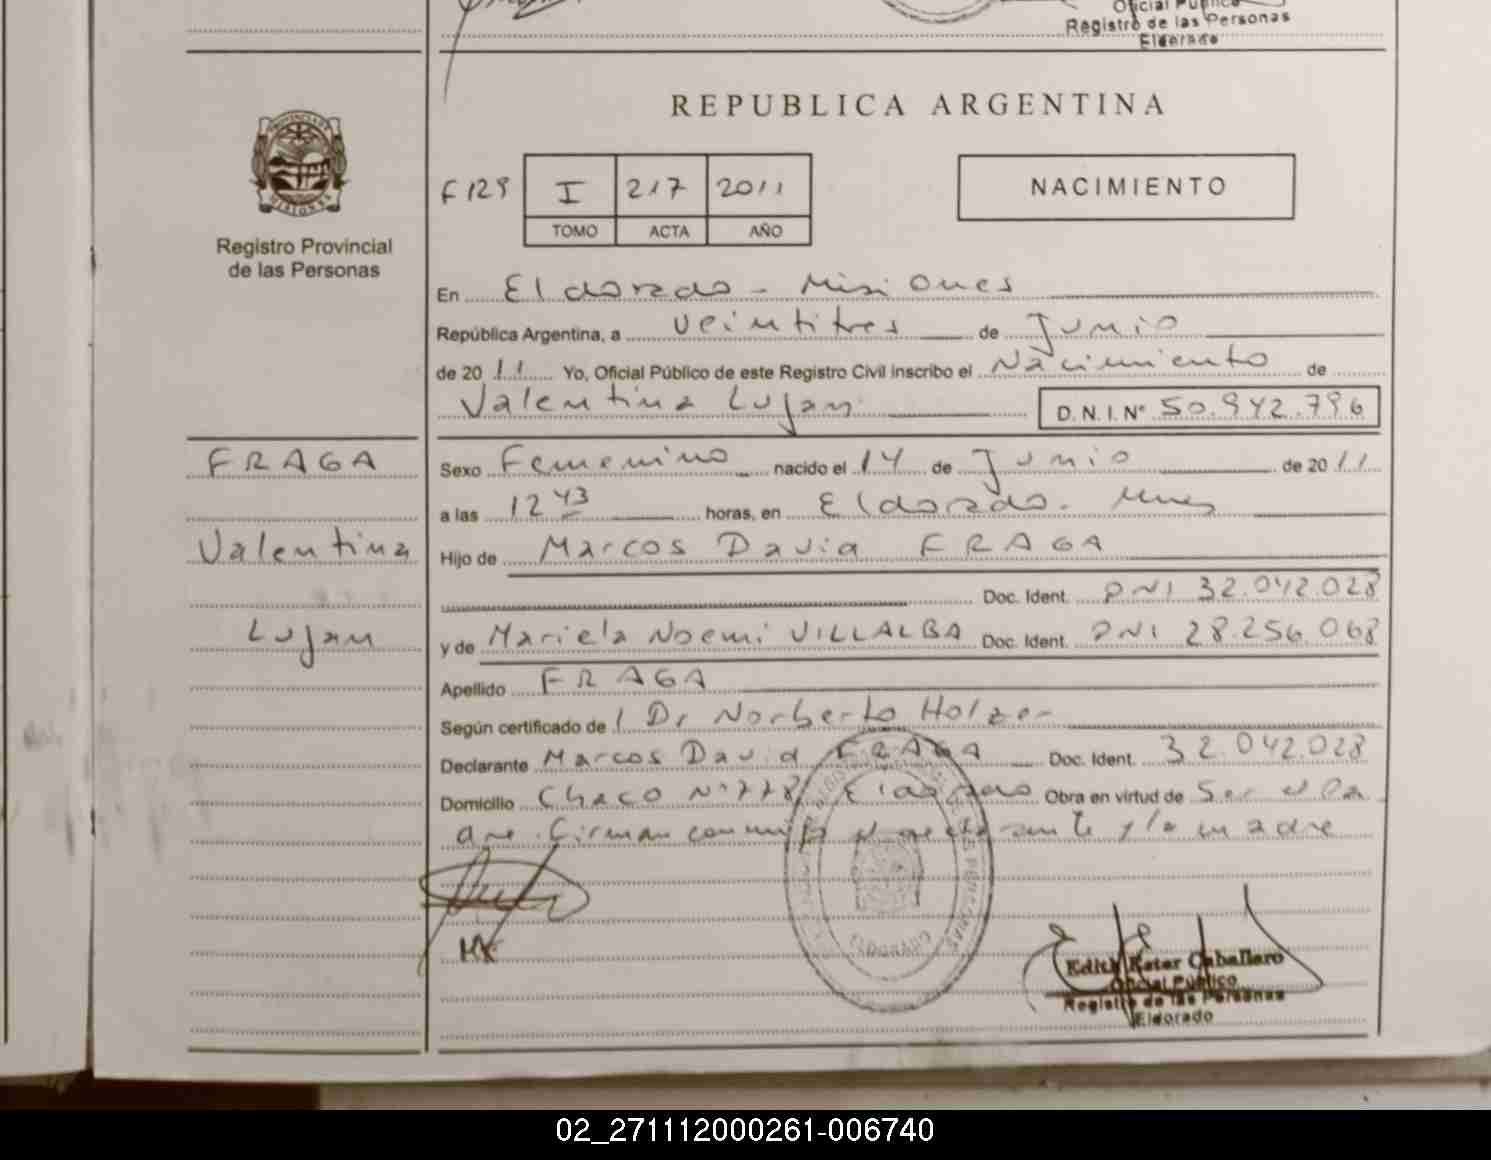 Oficial Público
Registro de las Personas
Eldorado
REPUBLICA ARGENTINA
PROVINCIA DE
MISIONES
Registro Provincial
de las Personas
F129 I 217 2011
TOMO ACTA AÑO
NACIMIENTO
En Eldorado - Misiones
República Argentina, a veintitres de Junio
de 2011 Yo, Oficial Público de este Registro Civil inscribo el Nacimiento de
Valentina Lujan D.N.I. Nº 50.942.796
FRAGA
Valentina
Lujan
Sexo Femenino nacido el 14 de Junio de 2011
a las 12 43 horas, en Eldorado. Mnes
Hijo de Marcos David FRAGA
Doc. Ident. DNI 32.042.028
y de Mariela Noemi VILLALBA Doc. Ident. DNI 28.256.068
Apellido FRAGA
Según certificado de Dr Norberto Holzer
Declarante Marcos David FRAGA Doc. Ident. 32.042.028
Domicilio Chaco Nº 778 Eldorado Obra en virtud de Ser el Pa
dre. Firman conmigo el y la madre
ELDORADO
Edith Ester Caballero
Oficial Público
Registro de las Personas
Eldorado
02_271112000261-006740